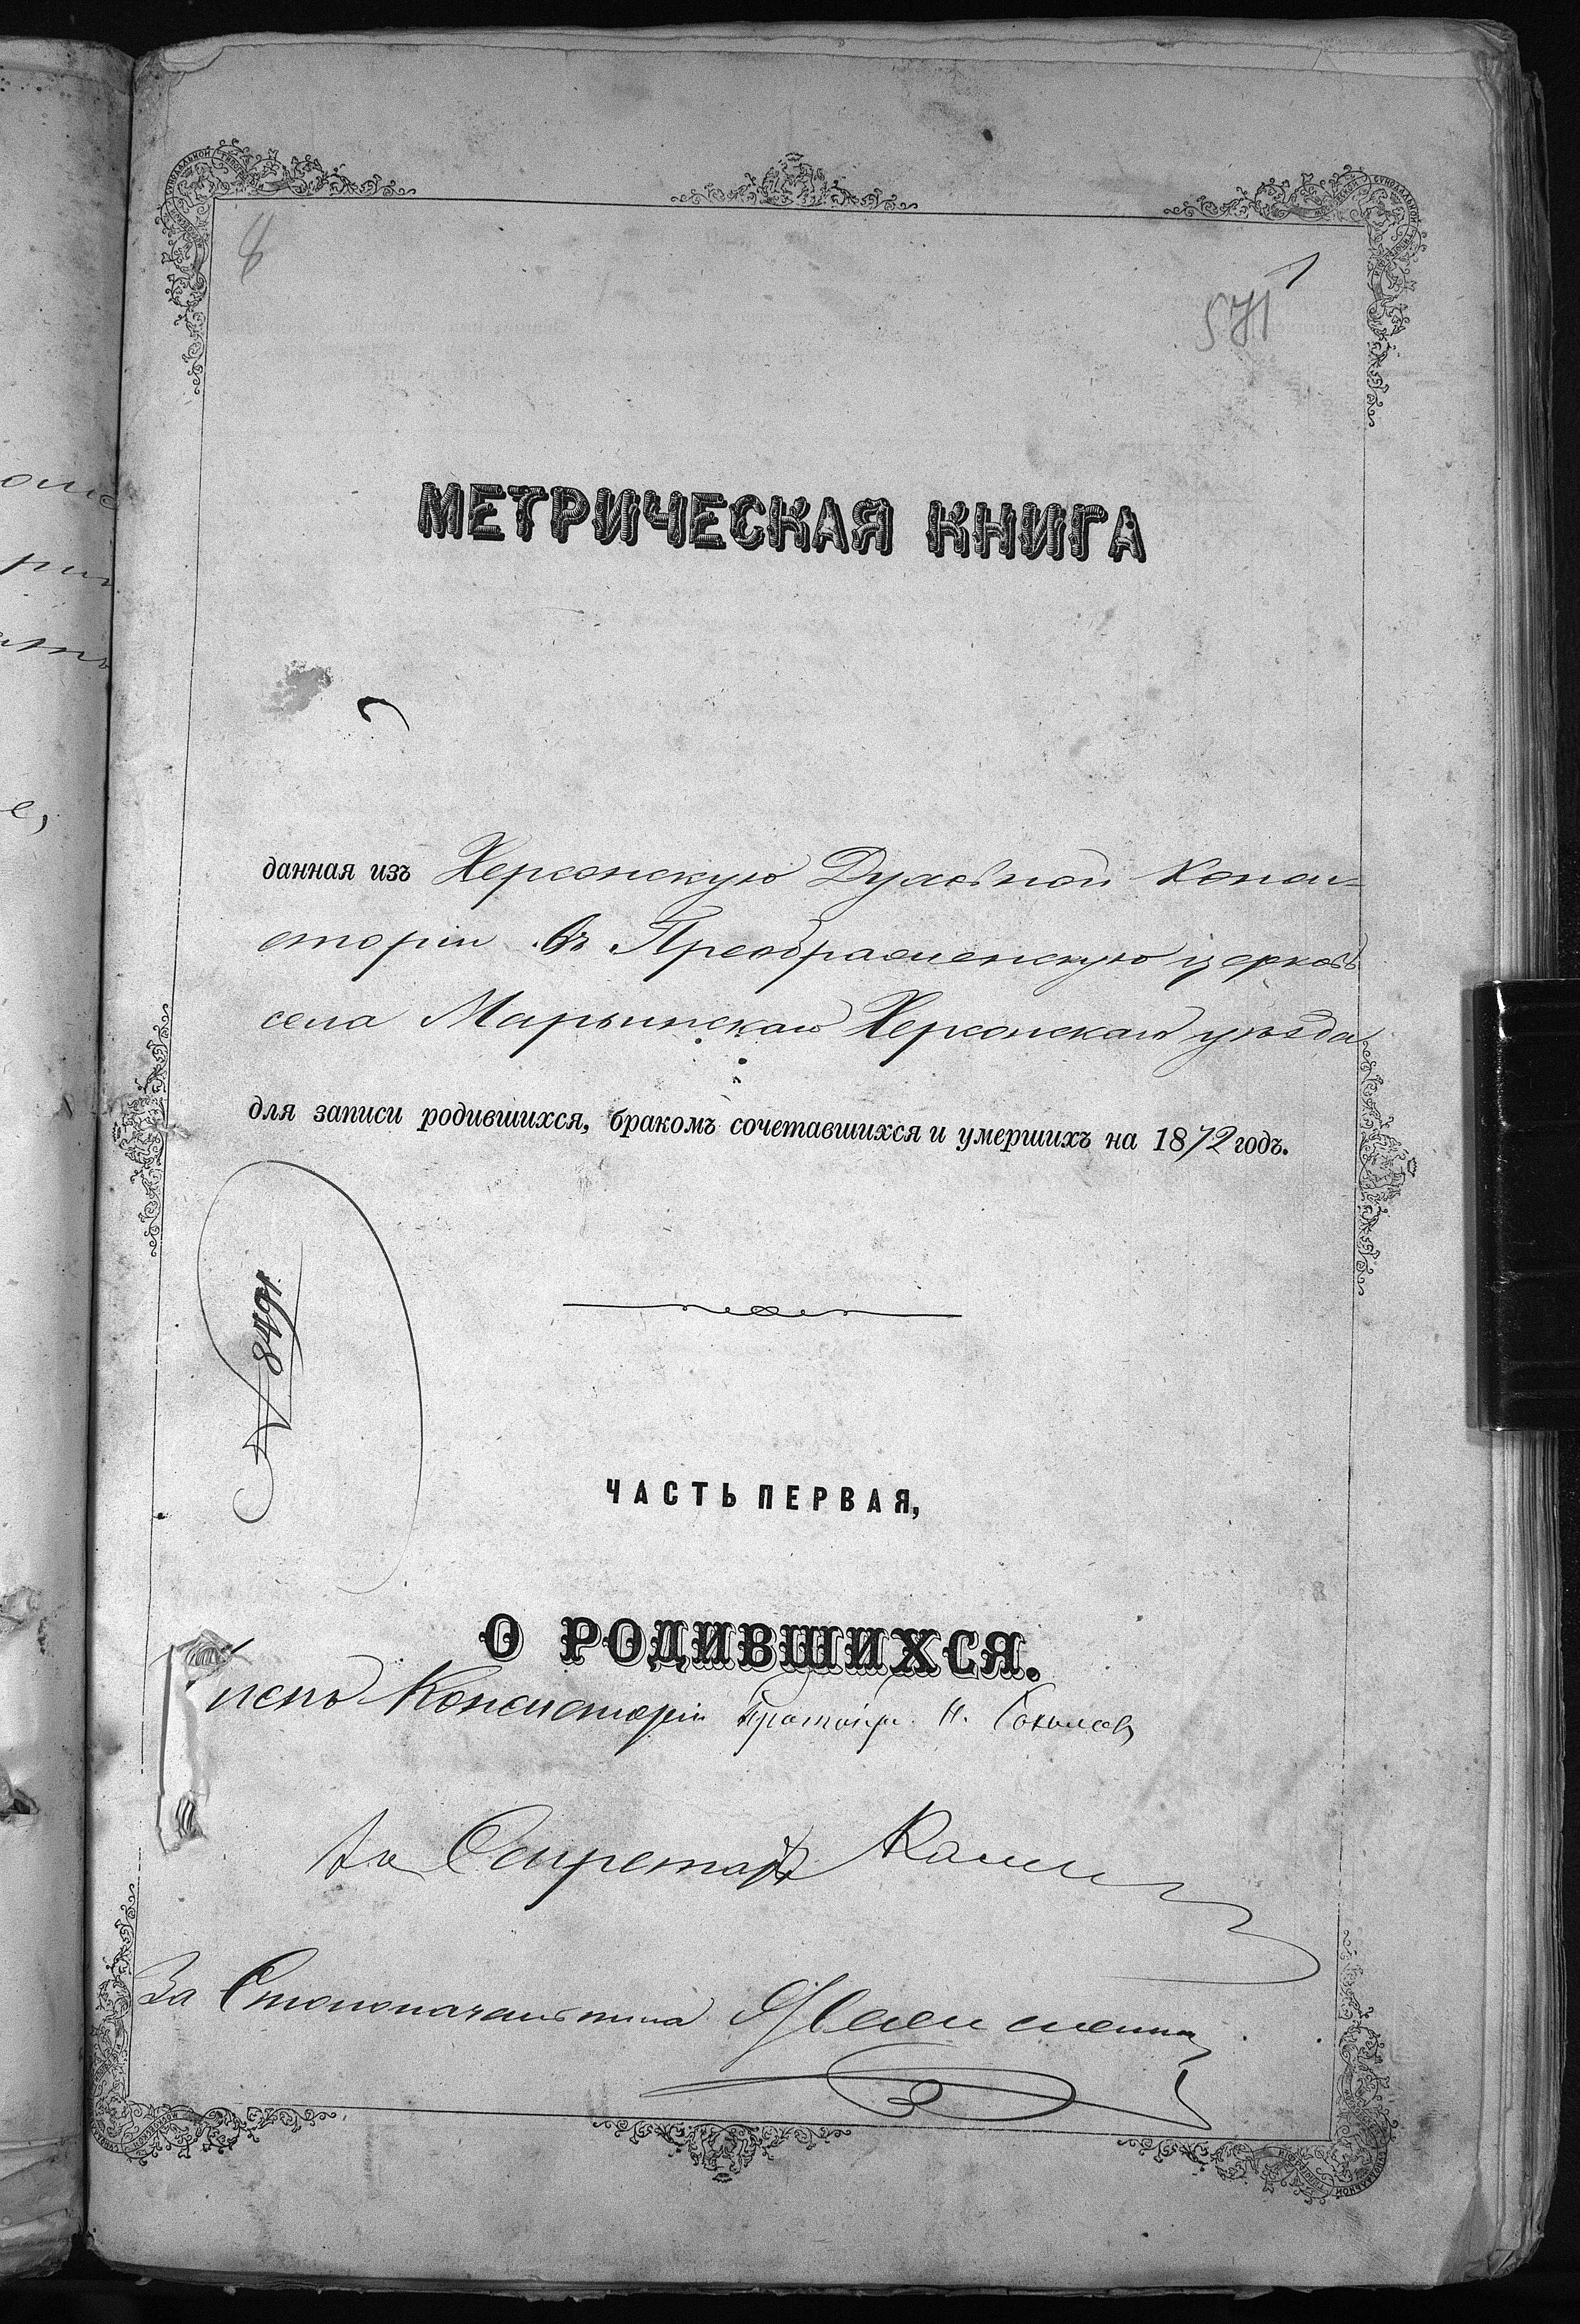 8
1
571
МЕТРИЧЕСКАЯ КНИГА
данная изъ Херсонскую Духовной Конси-
сторіи въ Преображенскую церковь
села Марьинскаго Херсонскаго уѣзда
для записи родившихся, бракомъ сочетавшихся и умершихъ на 1872 годъ.
№ 8491
ЧАСТЬ ПЕРВАЯ,
О РОДИВШИХСЯ.
Членъ Консисторіи Протоіер. Н. Соколовъ
За Секретаря
За Столоначальника